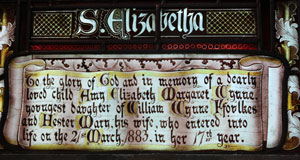 S. Elizabetha
To the glory of God and in memory of a dearly
loved child Amy Elizabeth Margaret Wynne
youngest daughter of William Wynne Ffoulkes
and Hester Mary, his wife, who entered into
life on the 21st March, 1883. in her 17th year.